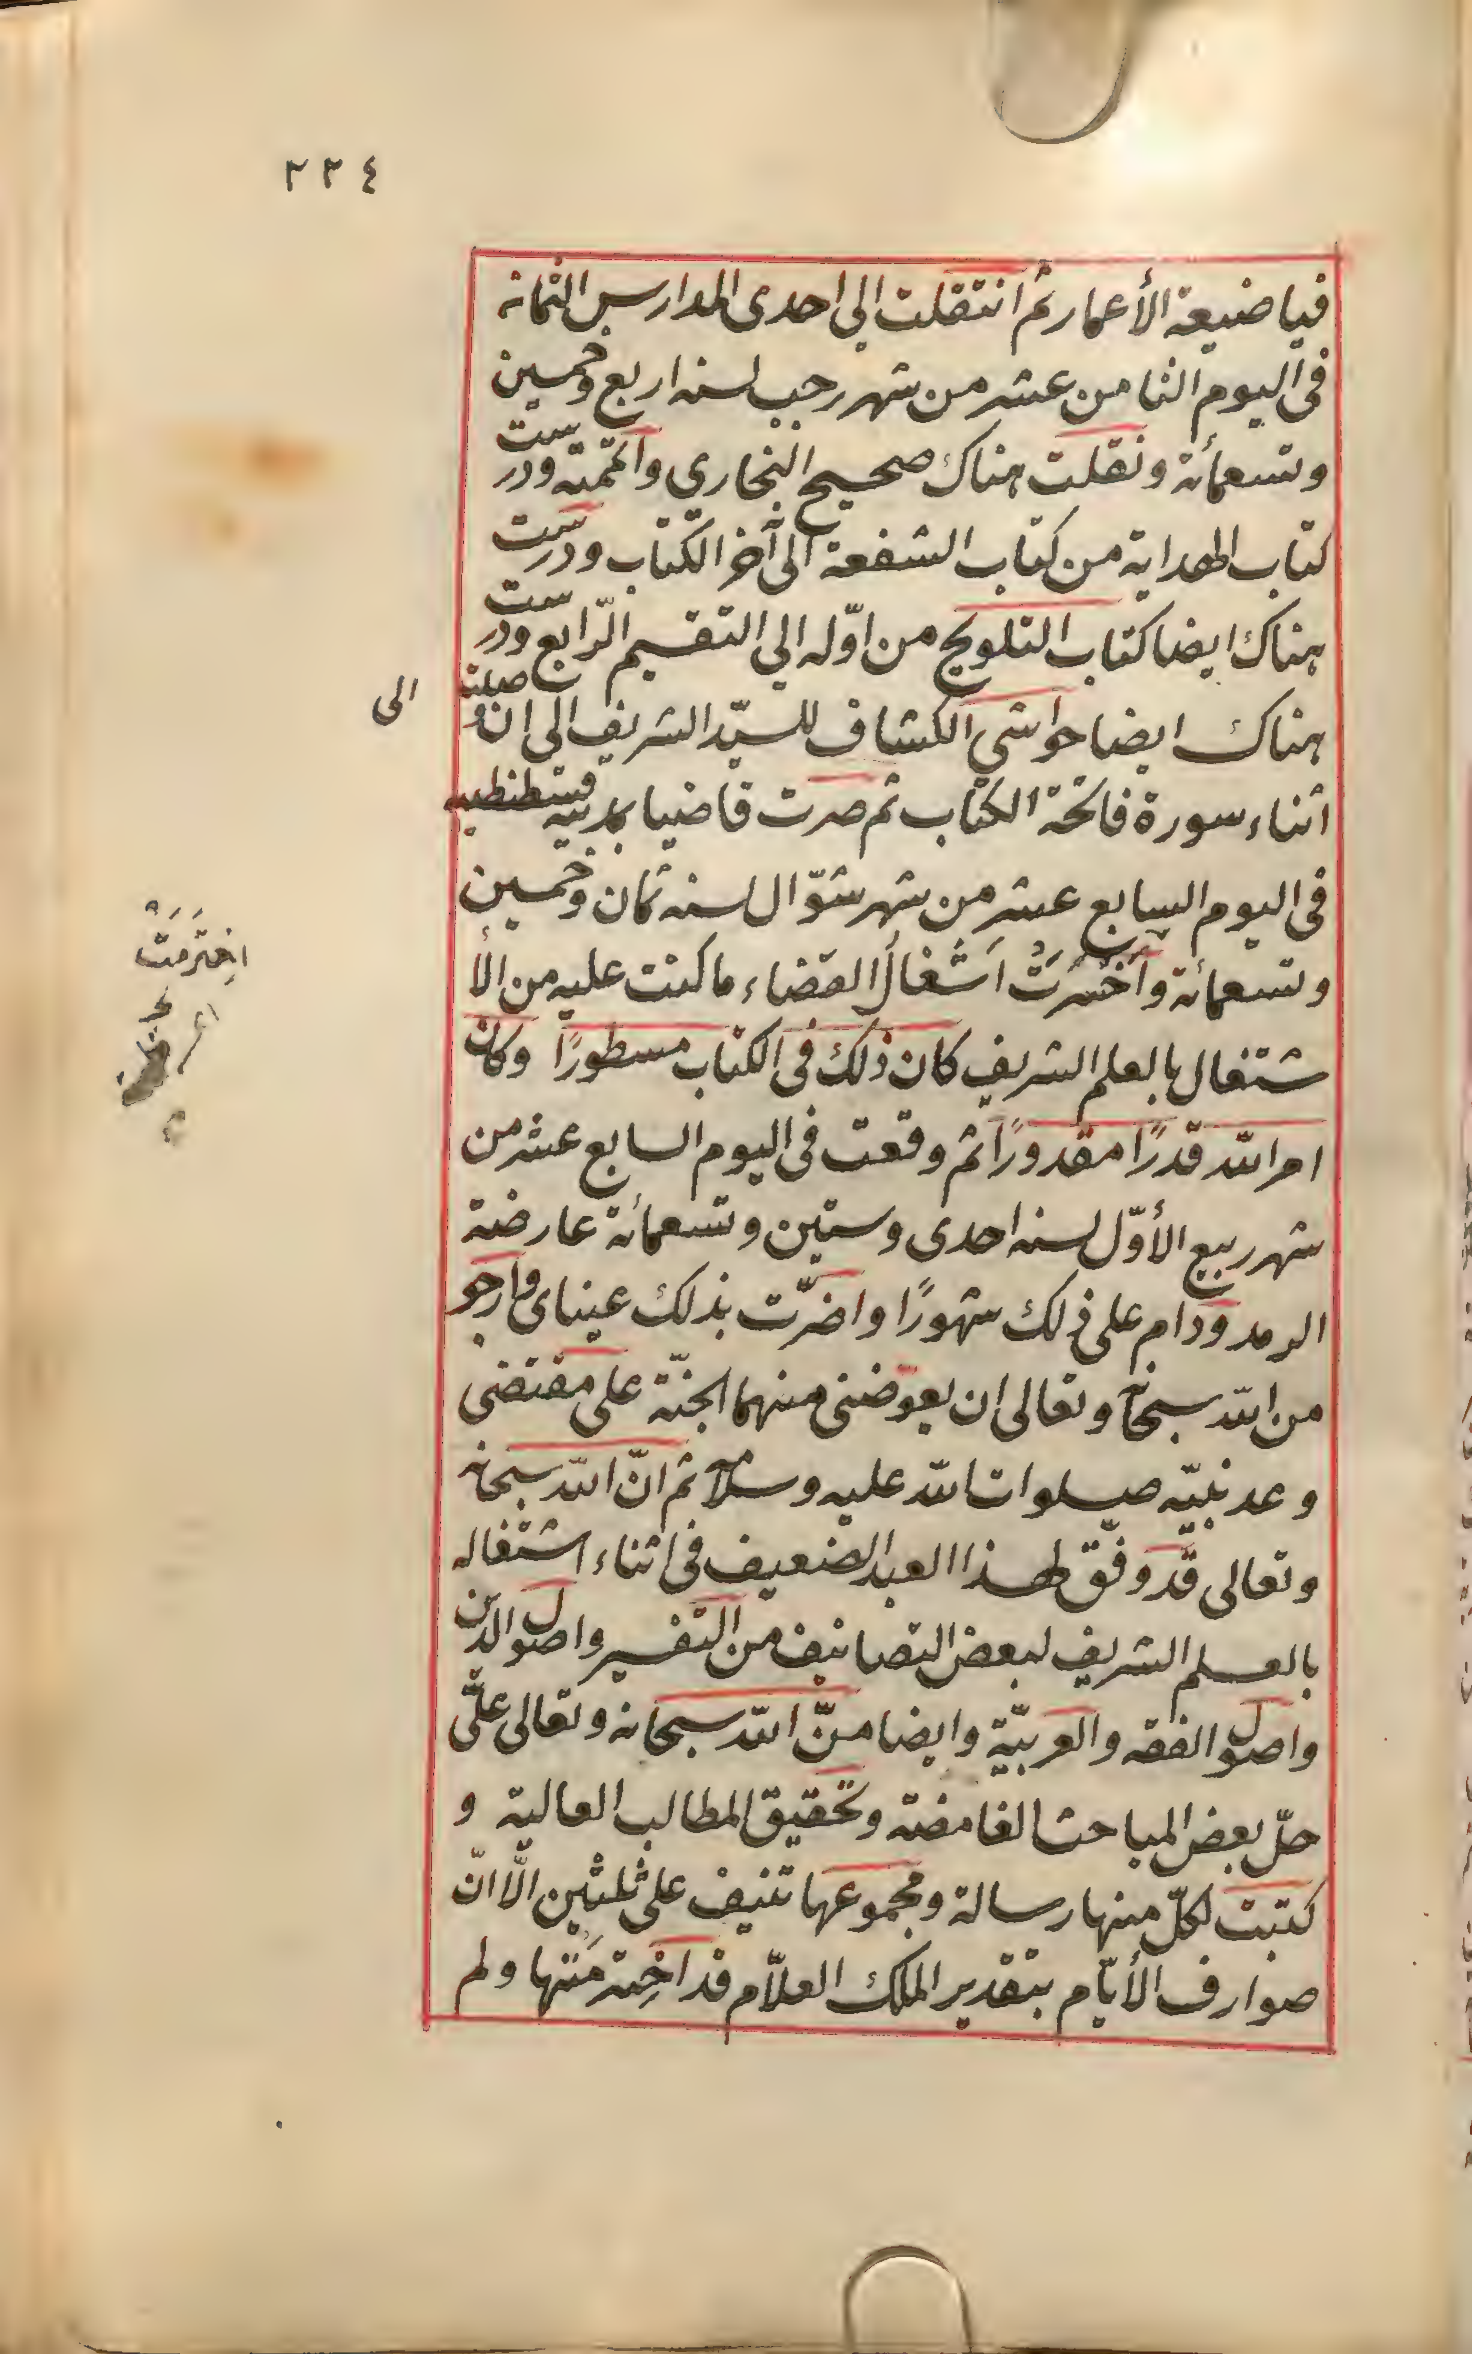 ٢٢٤
فيا ضيعة الأعمار ثم انتقلت الى احدى المدارس الثمانه
فى اليوم الثامن عشر من شهر رجب لسنه اربع وخمسين
وتسعمائة ونقلت هناك صحيح البخاري واتممته ودرست
كتاب الهداية من كتاب الشفعة الى آخر الكتاب ودرست
هناك ايضا كتاب التلويح من اوّله الي التقسيم الرّابع ودرست
هناك ايضا حواشي الكشاف للسيّد الشريف الى ان وصلت الى
اثناء سورة فاتحة الكتاب ثم صرت قاضيا بمدينة قسطنطينيه
فى اليوم السابع عشر من شهر شوّال لسنه ثمان وخمسين
وتسعمائة وَاَخْتَرَتْ اَشْغالُ القضاء ما كنت عليه من الأ
شتغال بالعلم الشريف كان ذلك فى الكتاب مسطورًا وكان
امر الله قدرًا مقدورًا ثم وقعت فى اليوم السابع عشر من
شهر ربيع الأوّل لسنه احدى وستين وتسعمائة عارضة
الرمد ودام على ذلك شهورًا واضرّت بذلك عيناى وارجو
من الله سبحانه وتعالى ان يعوّضنى منهما الجنّة على مقتضى
وعد نبيّه صلوات الله عليه وسلامه ثم انّ الله سبحانه
وتعالى قد وفّق لهذا العبد الضعيف فى اثناء اشتغاله
بالعلم الشريف لبعض التصانيف من التفسير واصول الدّين
واصول الفقه والعربيّة وايضا منّ الله سبحانه وتعالى علىّ
حلّ بعض المباحث الغامضة وتحقيق المطالب العالية و
كتبت لكلّ منها رسالة ومجموعها تنيف على ثلثين الّا انّ
صوارف الأيّام بتقدير الملك العلّام قد اخِترَمَتها ولم
اِخترَمَتْ